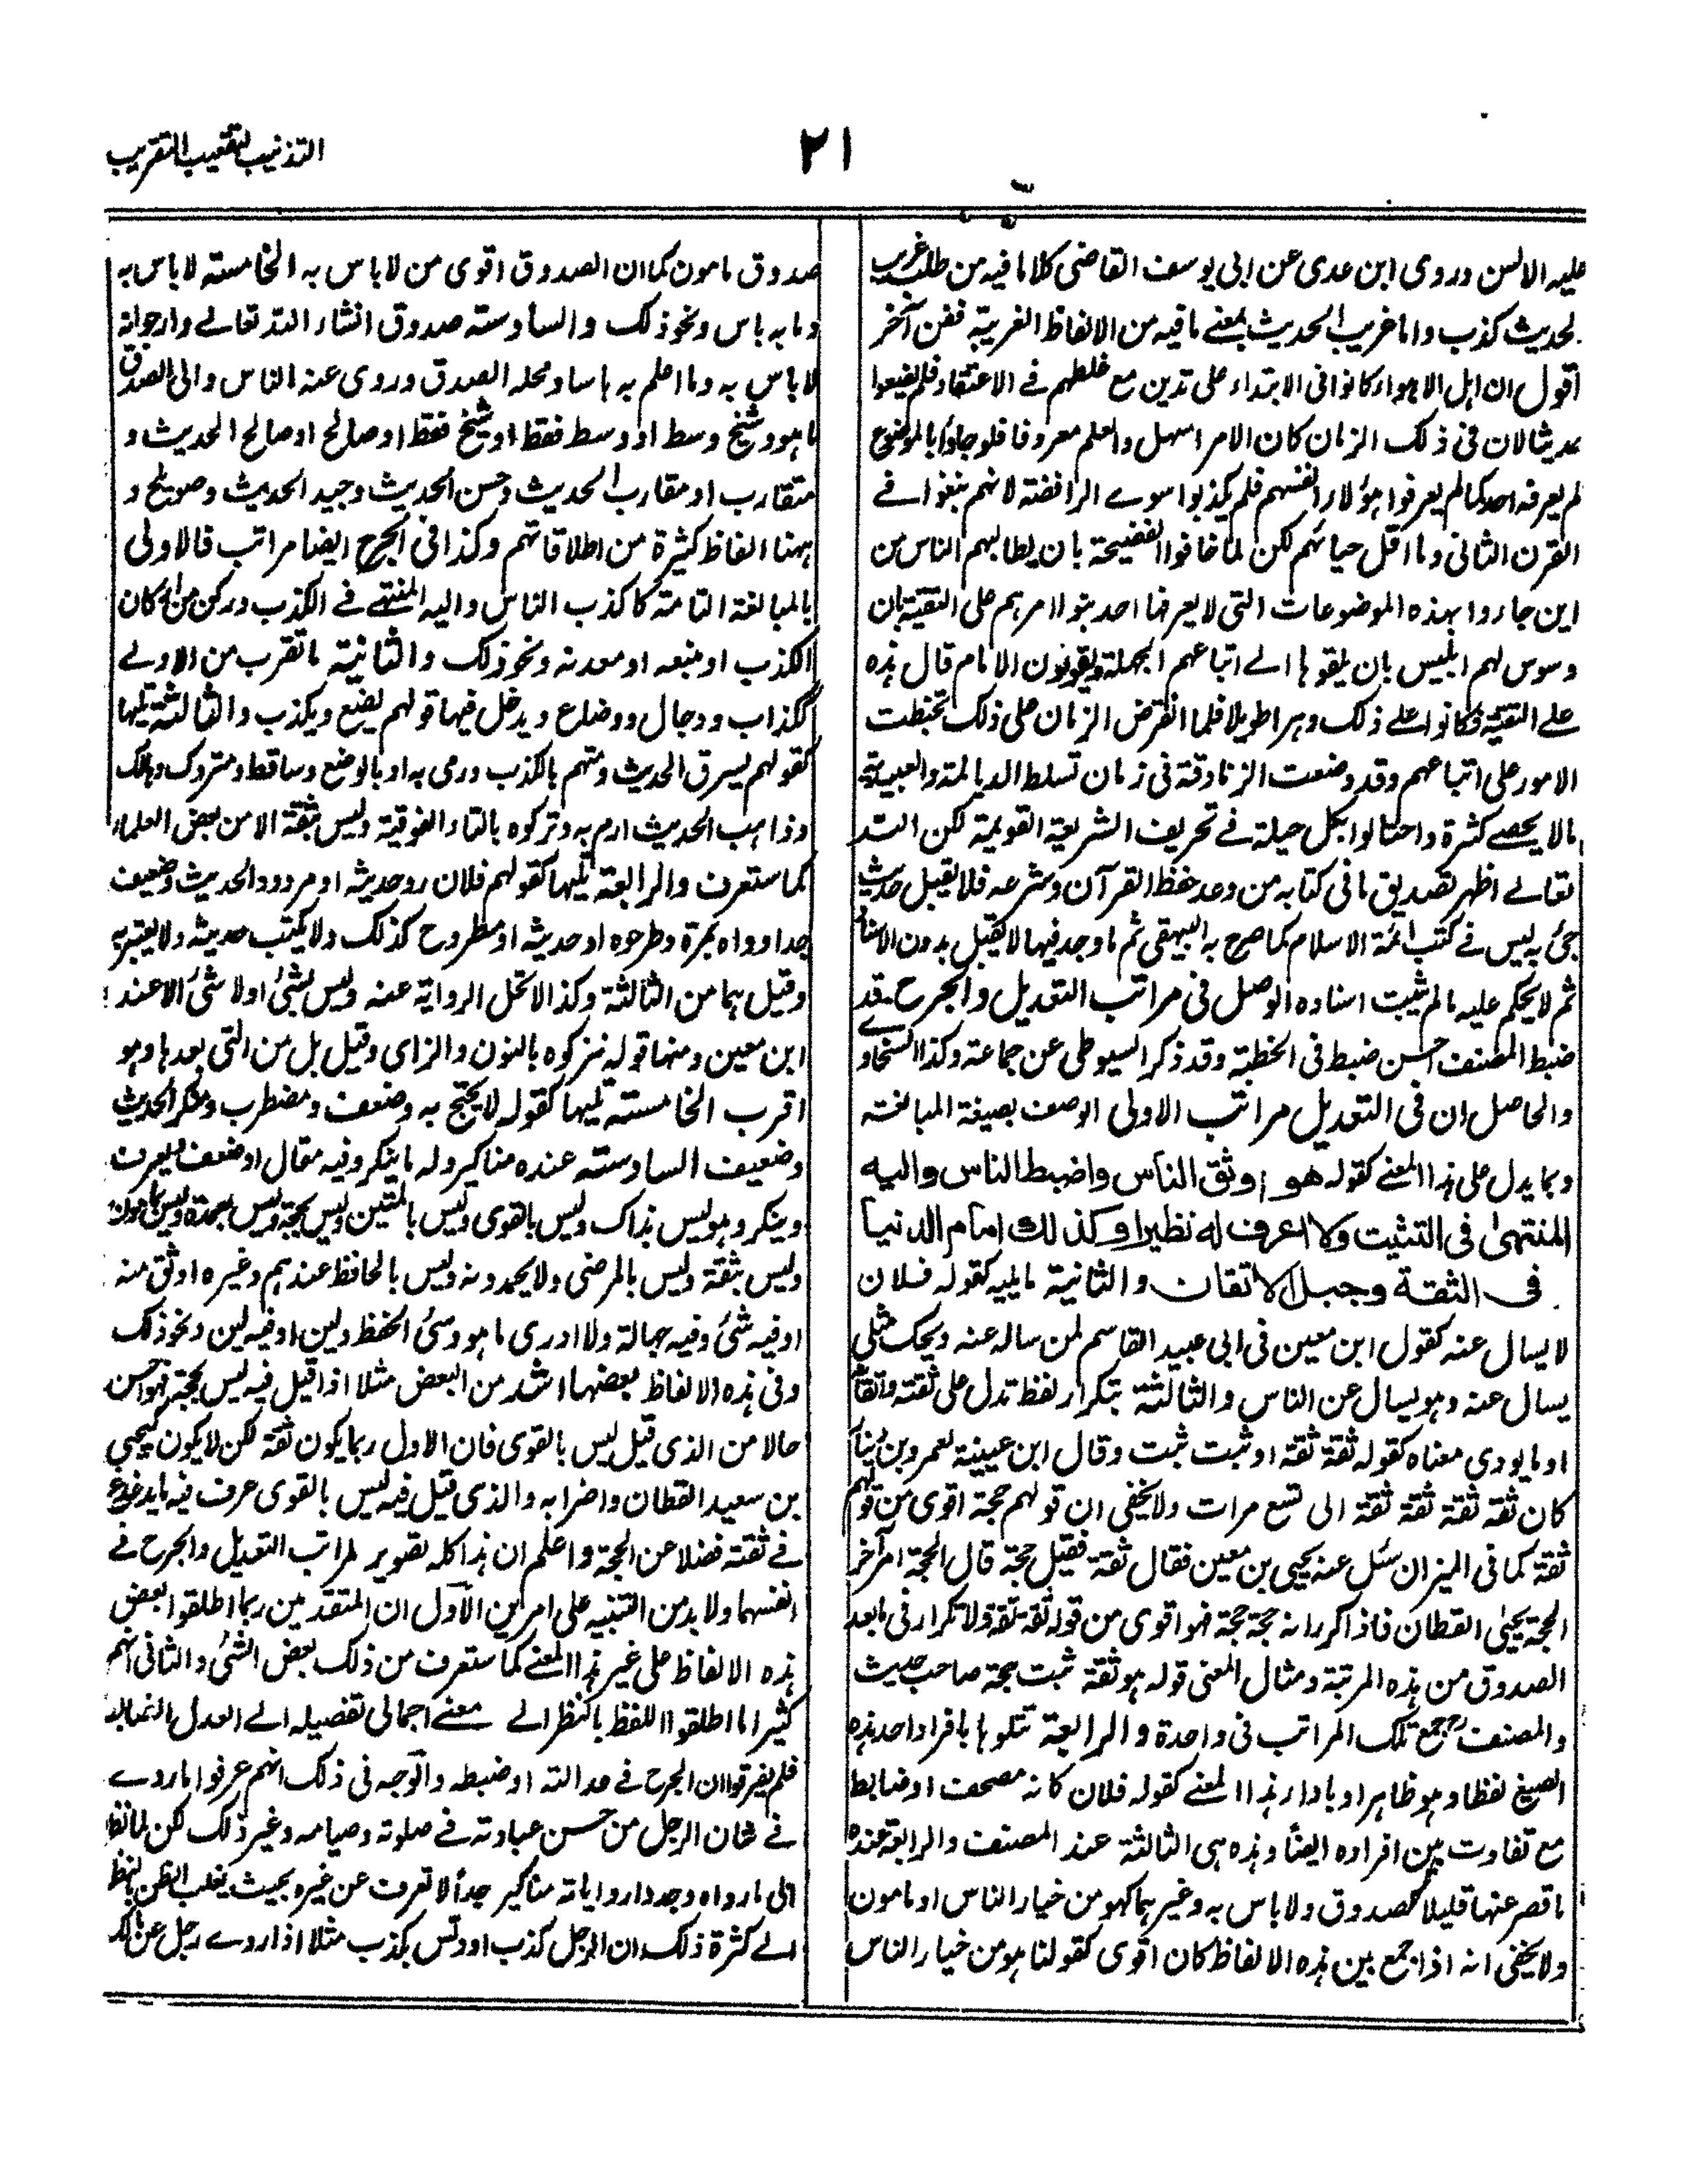 التذنيب لتعقيب التقريب
٢١
عليه الالسن وروى ابن عدى عن ابى يوسف القاضى كلاما فيه من طلب غريب
الحديث كذب واما غريب الحديث بمعنے مافيه من الالفاظ الغريبة ففن آخر
اقول ان اهل الاهواء كانوا فى الابتداء على تدين مع غلطهم فے الاعتقاد فلم يضعوا
حديثا لان فى ذلك الزمان كان الامر اسهل والعلم معروفا فلو جاؤا بالموضوع
لم يعرفه احد كما لم يعرفوا هؤلاء انفسهم فلم يكذبوا سوے الرافضة لانهم نبغوا فے
القرن الثانى وما اقل حيائهم لكن لما خافوا الفضيحة بان يطالبهم الناس من
اين جاءوا بهذه الموضوعات التى لا يعرفها احد بنوا امرهم على التقية بان
وسوس لهم ابليس بان يلقوها الے اتباعهم الجهلة ويقولون الامام قال هذه
علے التقية فكانوا علے ذلك دهرا طويلا فلما انقرض الزمان على ذلك تخبطت
الامور على اتباعهم وقد وضعت الزنادقة فى زمان تسلط الديالمة والعبيدية
مالا يحصے كثرة واحتالوا بكل حيلة فے تحريف الشريعة القويمة لكن الله
تعالے اظهر تصديق ما فى كتابه من وعد حفظ القرآن وشرعه فلا يقبل حديث
جئ به ليس فے كتب ائمة الاسلام كما صرح به البيهقى ثم ما وجد فيها لا يقبل بدون الاسناد
ثم لا يحكم عليه مالم يثبت اسناده الوصل فى مراتب التعديل والجرح۔ قد
ضبط المصنف احسن ضبط فى الخطبة وقد ذكر السيوطى عن جماعة وكذا السخاوے
والحاصل ان فى التعديل مراتب الاولى الوصف بصيغة المبالغة
وبما يدل على هذا المعنے كقوله هو اوثق الناس واضبط الناس واليه
المنتهىٰ فى التثبت ولا اعرف له نظيرا وكذلك امام الدنيا
فى الثقة وجبل الاتقان والثانية مايليه كقوله فلان
لا يسال عنه كقول ابن معين فى ابى عبيد القاسم لمن ساله عنه ويحك مثلى
يسال عنه وهو يسال عن الناس والثالثة بتكرار لفظ تدل على ثقته واتقانه
او ما يودى معناه كقوله ثقة ثقة او ثبت ثبت وقال ابن عيينة لعمرو بن دينار
كان ثقه ثقة ثقة ثقة الى تسع مرات ولا يخفى ان قولهم حجة اقوى من قولهم
ثقة كما فى الميزان سئل عنه يحيى بن معين فقال ثقة فقيل حجة قال الحجة امر آخر
الحجة يحيىٰ القطان فاذا كرر انه حجة حجة فهو اقوى من قوله ثقة ثقة ولا تكرار فى مابعد
الصدوق من هذه المرتبة ومثال المعنى قوله هو ثقة ثبت حجة صاحب حديث
والمصنف جمع تلك المراتب فى واحدة والرابعة تتلوها بافراد احد هذه
الصيغ لفظا وهو ظاهر او باداء هذا المعنے كقوله فلان كانه مصحف او ضابط
مع تفاوت بين افراده ايضًا وهذه هى الثالثة عند المصنف والرابعة عنده
ماقصر عنها قليلا كصدوق ولا باس به وغيرهما كهو من خيار الناس او مامون
ولا يخفى انه اذا جمع بين هذه الالفاظ كان اقوى كقولنا هو من خيار الناس
صدوق مامون كما ان الصدوق اقوى من لاباس به الخامسة لاباس به
وما به باس ونحو ذلك والسادسة صدوق انشاء الله تعالے وارجو انه
لاباس به وما اعلم به باسا ومحله الصدق وروى عنه الناس والى الصدق
ماهو وشيخ وسط او وسط فقط او شيخ فقط او صالح او صالح الحديث و
متقارب او مقارب الحديث وحسن الحديث وجيد الحديث وصويلح و
ههنا الفاظ كثيرة من اطلاقاتهم وكذا فى الجرح ايضا مراتب فالاولى
بالمبالغة التامة كاكذب الناس واليه المنتهے فے الكذب وركن من اركان
الكذب او منبعه او معدنه ونحو ذلك والثانية ماتقرب من الاولے
ككذاب ودجال ووضاع ويدخل فيها قولهم يضع ويكذب والثالثة تليها
كقولهم يسرق الحديث ومتهم بالكذب ورمى به او بالوضع وساقط ومتروك وهالك
وذاهب الحديث ارم به وتركوه بالتاء الفوقية وليس بثقة الا من بعض العلماء
كما ستعرف والرابعة تليها كقولهم فلان رد حديثه او مردود الحديث وضعيف
جدا وواه بمرة وطرحوه او حديثه او مطروح كذلك ولا يكتب حديثه ولا يعتبر به
وقيل هما من الثالثة وكذا لا تحل الرواية عنه وليس بشئ او لا شئ الا عند
ابن معين ومنها قوله نزكوه بالنون والزاى وقيل بل من التى بعدها وهو
اقرب الخامسة تليها كقوله لا يحتج به وضعف ومضطرب ومنكر الحديث
وضعيف السادسة عنده مناكير وله ما ينكر وفيه مقال او ضعف ويعرف
وينكر وهو ليس بذاك وليس بالقوى وليس بالمتين وليس بحجة وليس بعمدة وليس بمامون
وليس بثقة وليس بالمرضى ولا يحمدونه وليس بالحافظ عندهم وغيره اوثق منه
او فيه شئ وفيه جهالة ولا ادرى ما هو وسئ الحفظ ولين او فيه لين ونحو ذلك
وفى هذه الالفاظ بعضها اشد من البعض مثلا اذا قيل فيه ليس بحجة فهو احسن
حالا من الذى قيل ليس بالقوى فان الاول ربما يكون ثقة لكن لا يكون كيحيى
بن سعيد القطان واضرابه والذى قيل فيه ليس بالقوى عرف فيه مايدغدغ
فے ثقته فضلا عن الحجة واعلم ان هذا كله تصوير لمراتب التعديل والجرح فے
انفسهما ولا بد من التنبيه على امرين الآول ان المتقدمين ربما اطلقوا بعض
هذه الالفاظ على غير هذا المعنے كما ستعرف من ذلك بعض الشئ والثانى انهم
كثيرا ما اطلقوا اللفظ بالنظر الے معنے اجمالى تفصيله الے العدل الضابط
فلم يفرقوا ان الجرح فے عدالته او ضبطه والوجه فى ذلك انهم عرفوا ماروے
فے شان الرجل من حسن عبادته فے صلوته وصيامه وغير ذلك لكن لما نظر
الى مارواه وجدد اروايا ته مناكير جدا لا تعرف عن غيره بحيث يغلب الظن بالنظر
الے كثرة ذلك ان الرجل كذب او دلس بكذب مثلا اذا روے رجل عن مالك